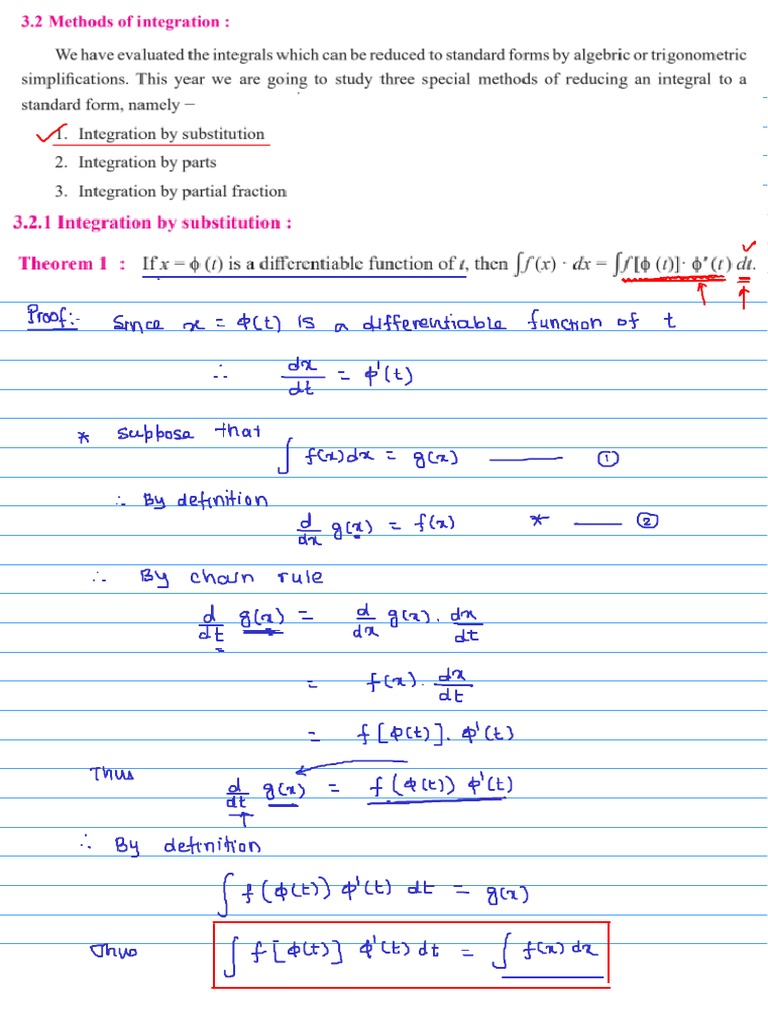 3.2 Methods of integration :
We have evaluated the integrals which can be reduced to standard forms by algebric or trigonometric
simplifications. This year we are going to study three special methods of reducing an integral to a
standard form, namely –
1. Integration by substitution
2. Integration by parts
3. Integration by partial fraction
3.2.1 Integration by substitution :
Theorem 1 : If x = ϕ (t) is a differentiable function of t, then ∫f (x) · dx = ∫f [ϕ (t)]· ϕ'(t) dt.
Proof:- Since x = ϕ(t) is a differentiable function of t
∴ dx/dt = ϕ'(t)
* Suppose that
∫ f(x)dx = g(x) —— ①
∴ By definition
d/dx g(x) = f(x) * —— ②
∴ By chain rule
d/dt g(x) = d/dx g(x). dx/dt
= f(x). dx/dt
= f[ϕ(t)]. ϕ'(t)
Thus
d/dt g(x) = f(ϕ(t)) ϕ'(t)
∴ By definition
∫ f(ϕ(t)) ϕ'(t) dt = g(x)
Thus ∫ f[ϕ(t)] ϕ'(t) dt = ∫ f(x) dx